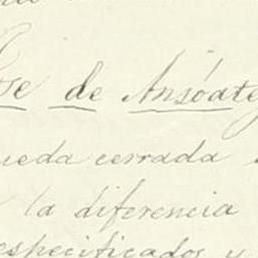 de Ansóateg
ueda cerrada
la diferencia
especificados y